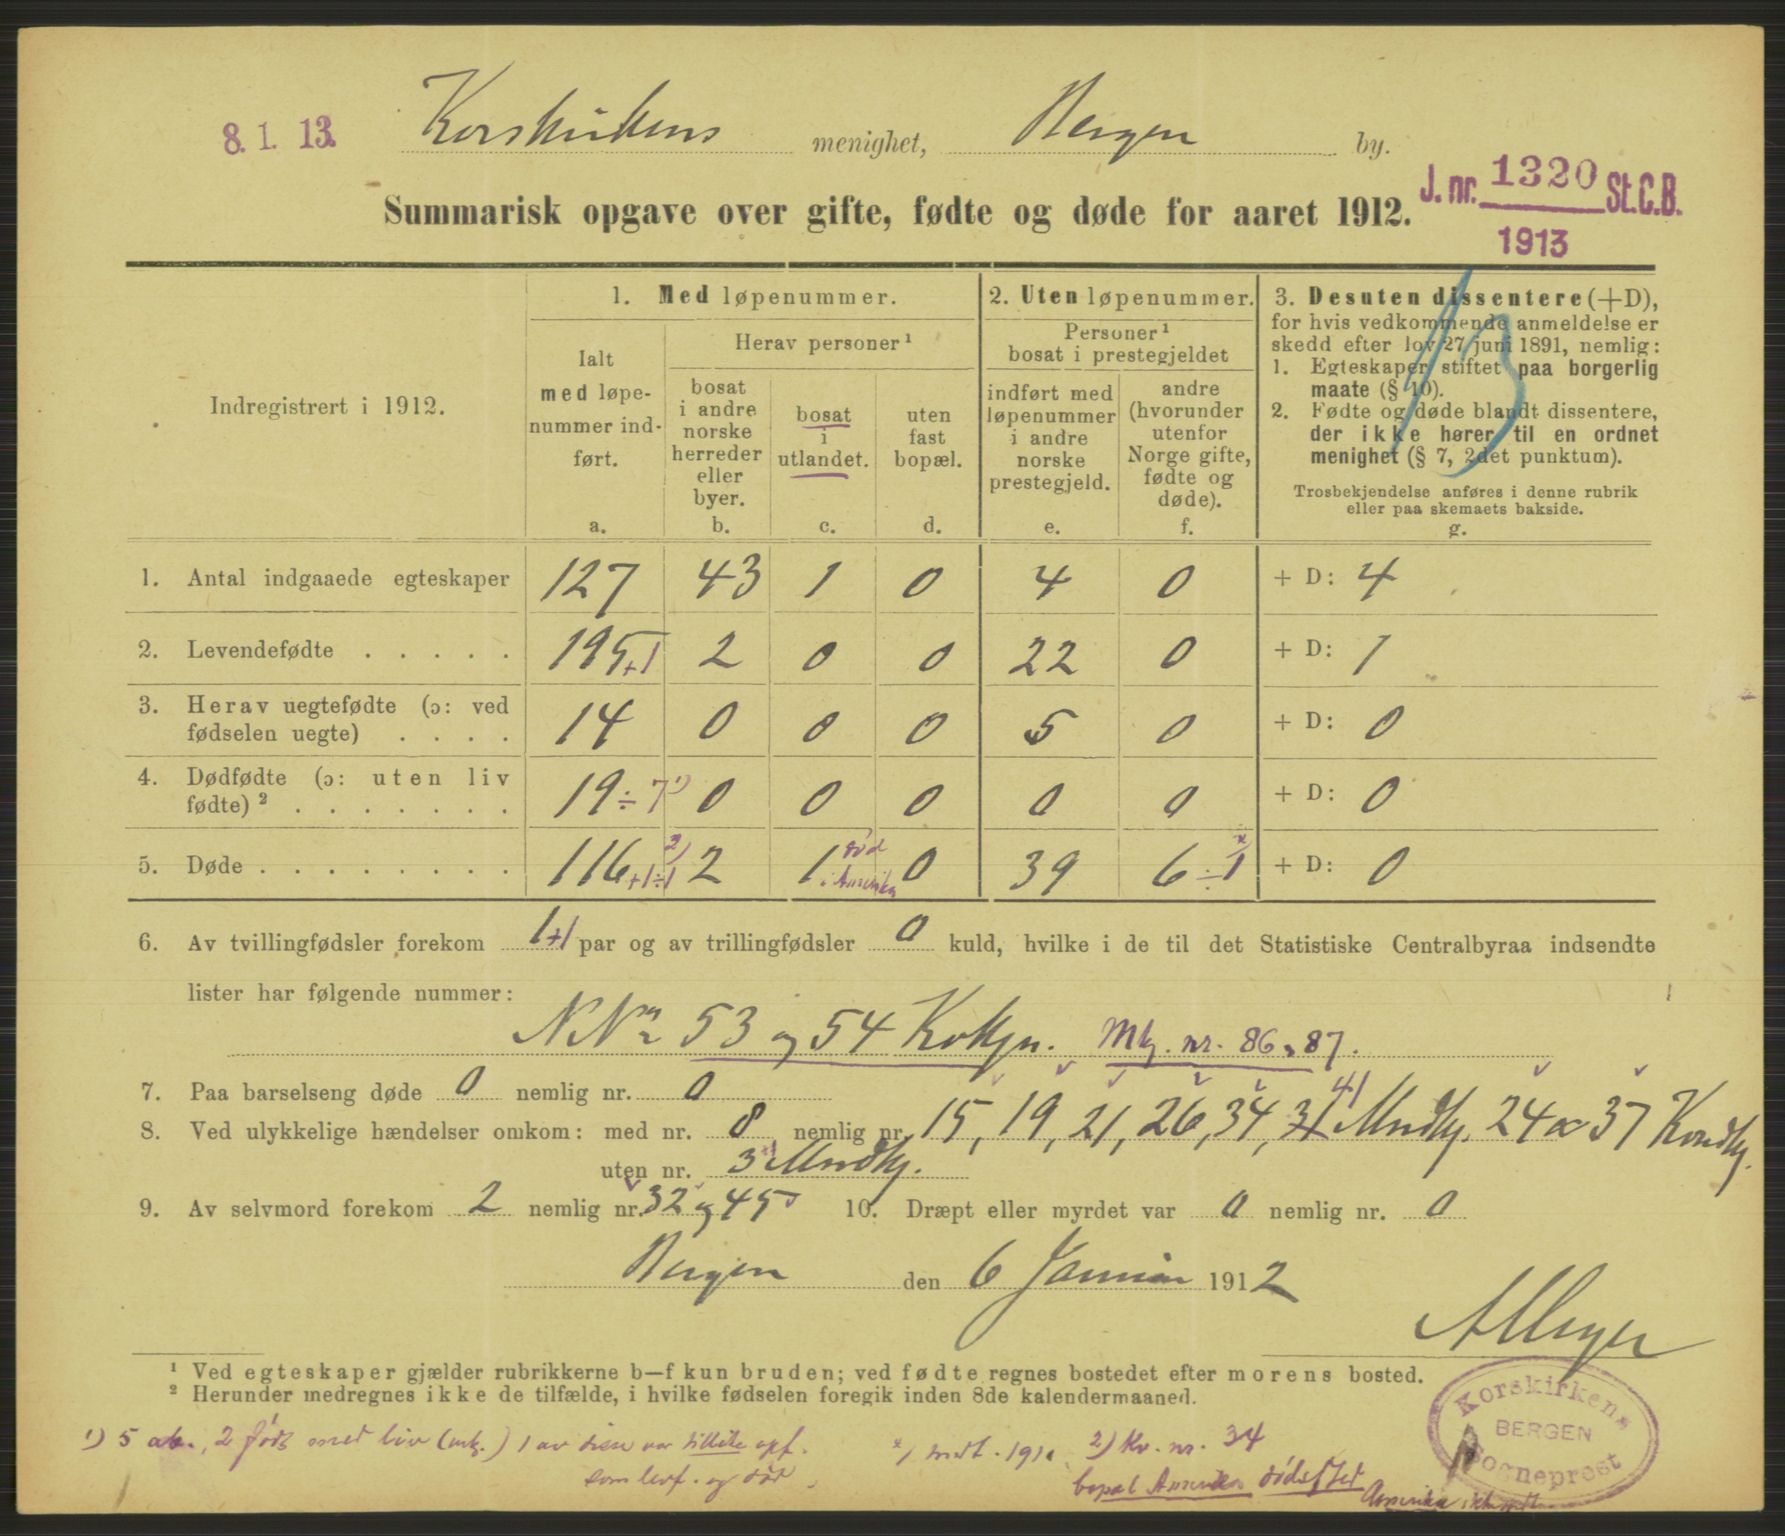 8. 1. 13.
Korskirkens menighet, Bergen by.
J. nr. 1320 St. C. B.
1913
Summarisk opgave over gifte, fødte og døde for aaret 1912.
13
Indregistrert i 1912.
1. Med løpenummer.
Ialt med løpenummer indført.
a.
Herav personer¹
bosat i andre norske herreder eller byer.
b.
bosat i utlandet.
c.
uten fast bopæl.
d.
2. Uten løpenummer.
Personer¹ bosat i prestegjeldet
indført med løpenummer i andre norske prestegjeld.
e.
andre (hvorunder utenfor Norge gifte, fødte og døde).
f.
3. Desuten dissentere (+D),
for hvis vedkommende anmeldelse er
skedd efter lov 27 juni 1891, nemlig:
1. Egteskaper stiftet paa borgerlig
maate (§ 10).
2. Fødte og døde blandt dissentere,
der ikke hører til en ordnet
menighet (§ 7, 2det punktum).
Trosbekjendelse anføres i denne rubrik
eller paa skemaets bakside.
g.
1. Antal indgaaede egteskaper 127 43 1 0 4 0 + D: 4
2. Levendefødte . . . . . 195 +1 2 0 0 22 0 + D: 1
3. Herav uegtefødte (ɔ: ved
fødselen uegte) . . . . 14 0 0 0 5 0 + D: 0
4. Dødfødte (ɔ: uten liv
fødte)² . . . . . . . 19 ÷ 7¹) 0 0 0 0 0 + D: 0
5. Døde . . . . . . . . 116 +1÷1 ²) 2 1 død i Amerika 0 39 6 ÷ 1 ˣ) + D: 0
6. Av tvillingfødsler forekom 1+1 par og av trillingfødsler 0 kuld, hvilke i de til det Statistiske Centralbyraa indsendte
lister har følgende nummer:
53 og 54 Mkj. nr. 86 & 87.
7. Paa barselseng døde 0 nemlig nr. 0
8. Ved ulykkelige hændelser omkom: med nr. 8 nemlig nr. 15, 19, 21, 26, 34, 31 41 24 37
uten nr. 3
9. Av selvmord forekom 2 nemlig nr. 32 og 45 10. Dræpt eller myrdet var 0 nemlig nr. 0
Bergen den 6 Januar 1912
¹ Ved egteskaper gjælder rubrikkerne b—f kun bruden; ved fødte regnes bostedet efter morens bosted.
² Herunder medregnes ikke de tilfælde, i hvilke fødselen foregik inden 8de kalendermaaned.
Korskirkens
BERGEN
Sogneprest
¹) 5 ab., 2 født med liv (mk.) 1 av disse var tillike opf.
som levf. og død.
ˣ) 2) Kv. nr. 34
bopæl Amerika dødssted
Amerika